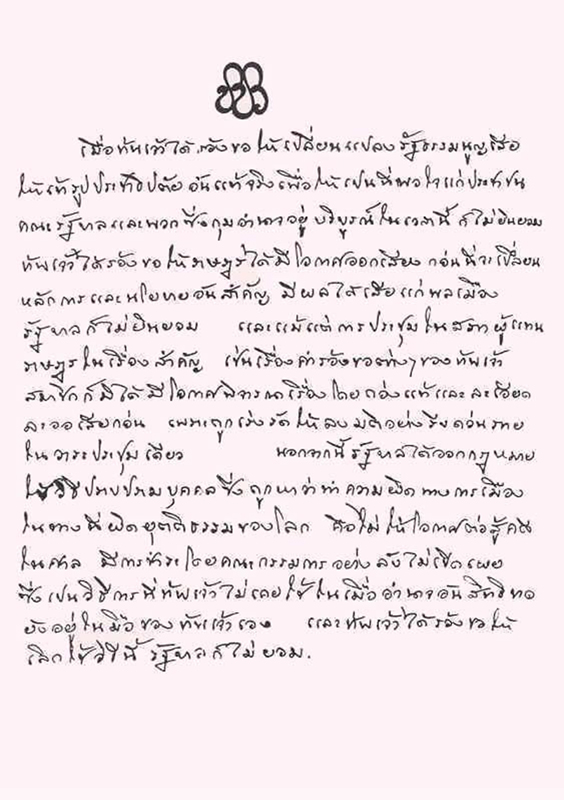 เมื่อข้าพเจ้าได้ร้องขอให้เปลี่ยนแปลงรัฐธรรมนูญเสีย
ให้เข้ารูปประชาธิปตัยอันแท้จริงเพื่อให้เป็นที่พอใจแก่ประชาชน
คณะรัฐบาลและพวกซึ่งกุมอำนาจอยู่บริบูรณ์ในเวลานี้ ก็ไม่ยินยอม
ข้าพเจ้าได้ร้องขอให้ราษฎรได้มีโอกาศออกเสียง ก่อนที่จะเปลี่ยน
หลักการและนโยบายอันสำคัญ มีผลได้เสียแก่พลเมือง
รัฐบาลก็ไม่ยินยอม และแม้แต่การประชุมในสภาผู้แทน
ราษฎรในเรื่องสำคัญ เช่นเรื่องคำร้องขอต่างๆ ของข้าพเจ้า
สมาชิกก็มิได้มีโอกาศพิจารณาเรื่องโดยถ่องแท้และละเอียด
ละออเสียก่อน เพราะถูกเร่งรัดให้ลงมติอย่างรีบด่วนภาย
ในวาระประชุมเดียว นอกจากนี้รัฐบาลได้ออกกฎหมาย
ใช้วิธีปราบปรามบุคคลซึ่งถูกหาว่าทำความผิดทางการเมือง
ในทางที่ผิดยุตติธรรมของโลก คือไม่ให้โอกาศต่อสู้คดี
ในศาล มีการชำระโดยคณะกรรมการอย่างลับไม่เปิดเผย
ซึ่งเป็นวิธีการที่ข้าพเจ้าไม่เคยใช้ในเมื่ออำนาจอันสิทธิขาด
ยังอยู่ในมือของข้าพเจ้าเอง และข้าพเจ้าได้ร้องขอให้
เลิกใช้วิธีนี้ รัฐบาลก็ไม่ยอม.